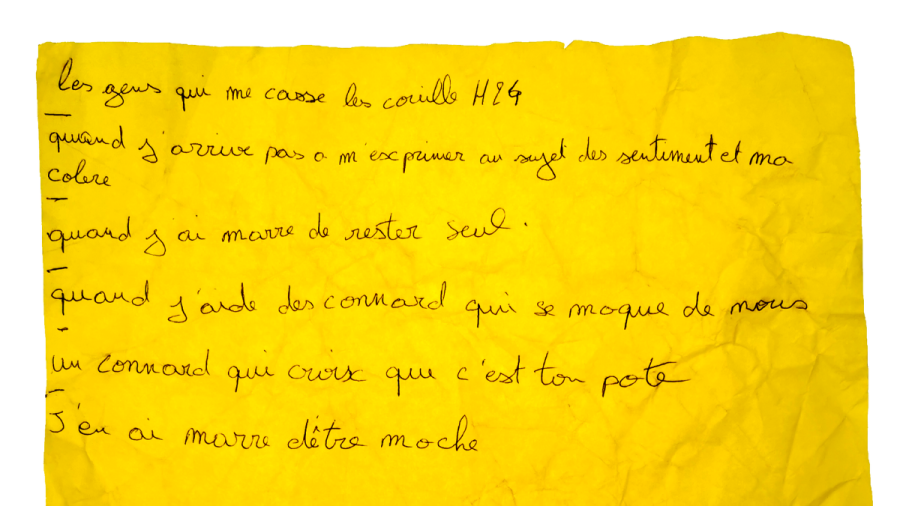 les gens qui me casse les couille H24
quand j'arrive pas a m'exprimer au sujet des sentiment et ma
colere
quand j'ai marre de rester seul.
quand j'aide des connard qui se moque de nous
un connard qui croix que c'est ton pote
J'en ai marre d'être moche